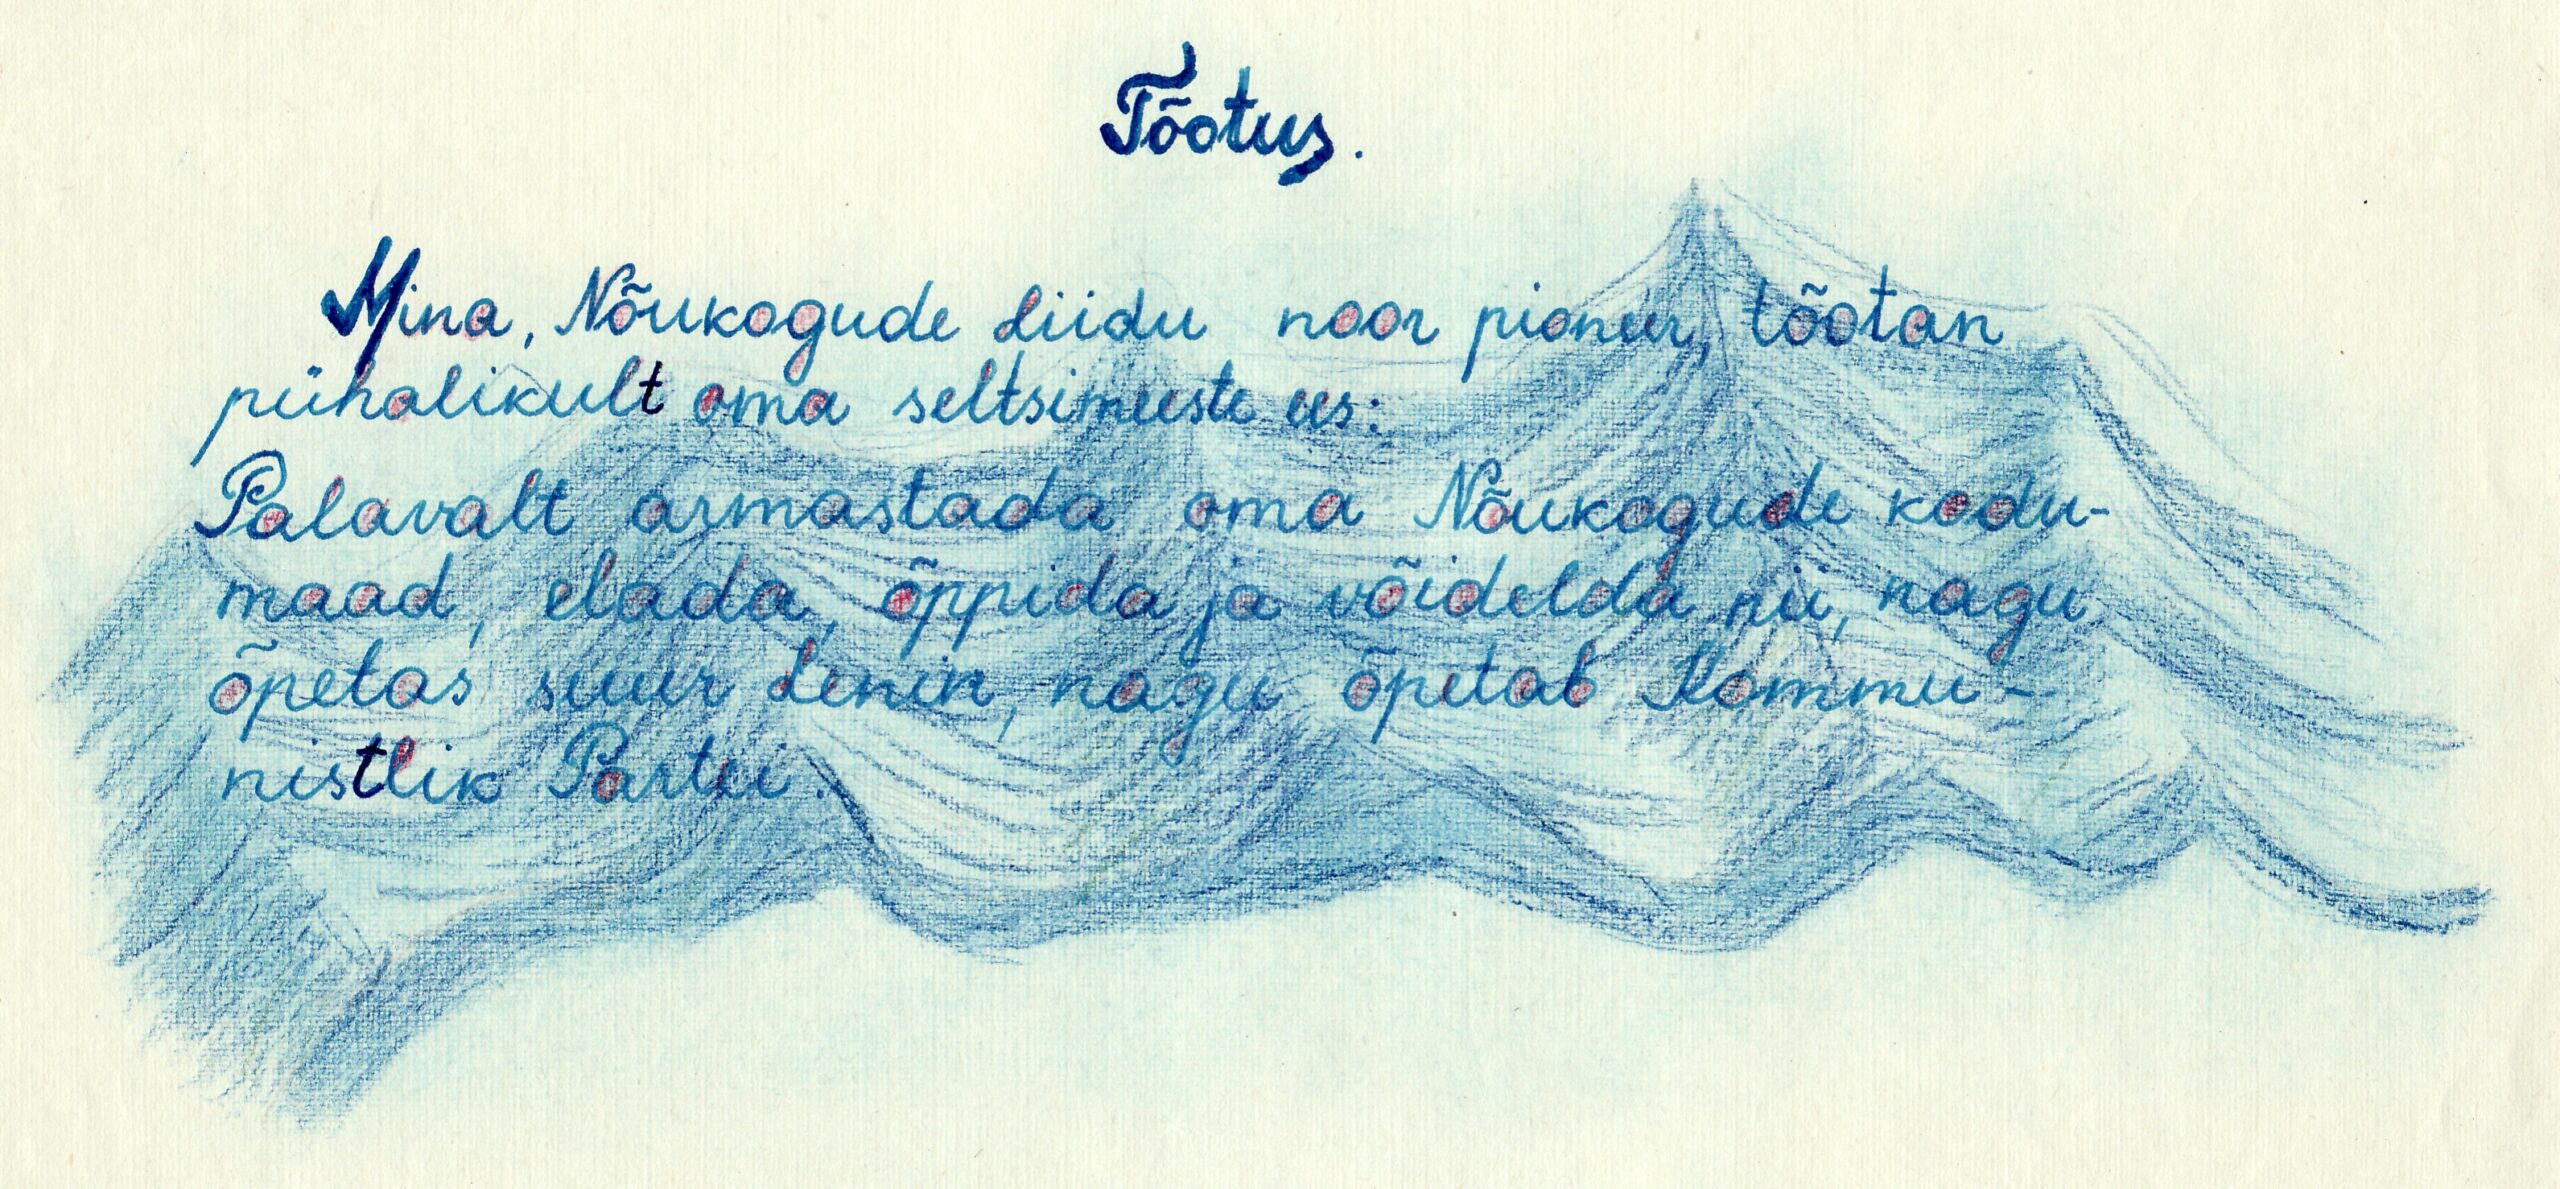 Tõotus.
Mina, Nõukogude Liidu noor pioneer, tõotan
pühalikult oma seltsimeeste ees:
Palavalt armastada oma Nõukogude kodu-
maad, elada, õppida ja võidelda nii, nagu
õpetas suur Lenin, nagu õpetab Kommu-
nistlik Partei.